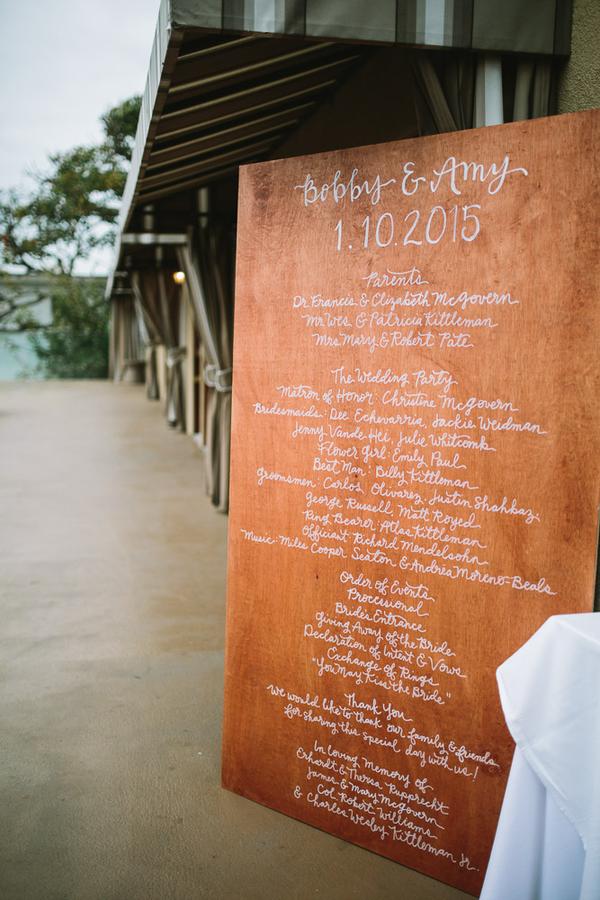 Bobby & Amy
1.10.2015
Parents
Dr Francis & Elizabeth McGovern
Mr Wes & Patricia Kittleman
Mrs Mary & Robert Pate
The Wedding Party
Matron of Honor: Christine McGovern
Bridesmaids: Dee Echevarria, Jackie Weidman
Jenny Vande Hei, Julie Whitcomb
Flower girl: Emily Paul
Best Man: Billy Kittleman
Groomsmen: Carlos Olivarez, Justin Shahbaz,
George Russell, Matt Royed
Ring Bearer: Atlas Kittleman
Officiant Richard Mendelsohn
Music: Miles Cooper Seaton & Andrea Moreno-Beals
Order of Events
Processional
Bride's Entrance
Giving Away of the Bride
Declaration of Intent & Vows
Exchange of Rings
"You May Kiss the Bride"
Thank You
We would like to thank our family & friends
for sharing this special day with us!
In Loving Memory of
Erhardt & Theresa Rupprecht
James & Mary McGovern
Col. Robert Williams
& Charles Wesley Kittleman Jr.